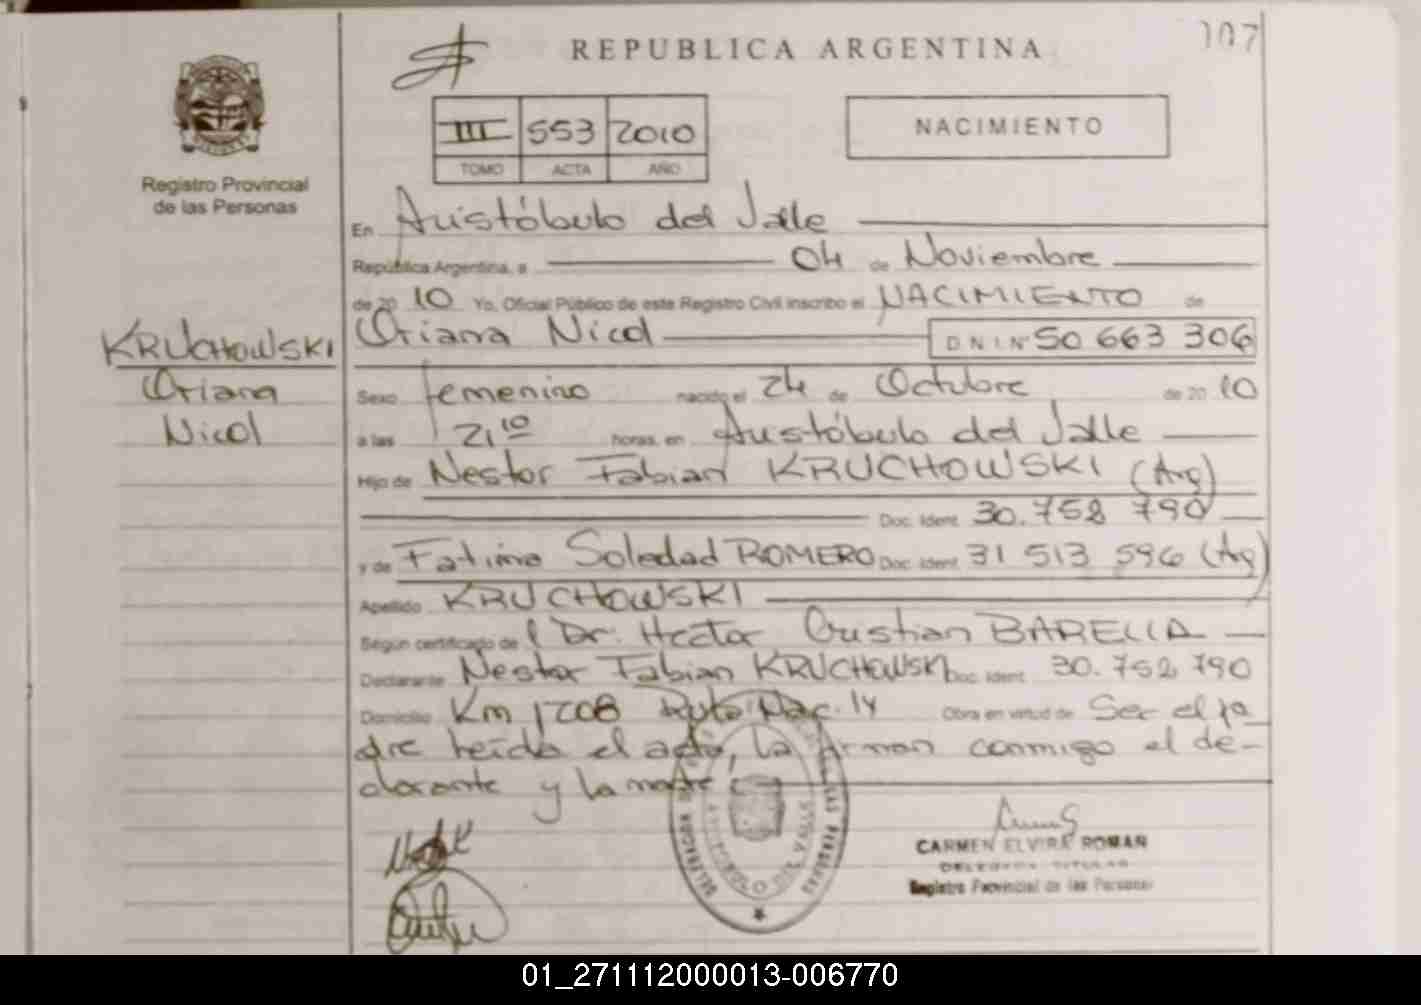 107
REPUBLICA ARGENTINA
III 553 2010
TOMO ACTA AÑO
NACIMIENTO
Registro Provincial
de las Personas
En Aristóbulo del Valle
República Argentina, a 04 de Noviembre
de 20 10 Yo, Oficial Público de este Registro Civil inscribo el NACIMIENTO de
KRUCHOWSKI
Oriana
Nicol
Oriana Nicol D N I Nº 50 663 306
Sexo femenino nacido el 24 de Octubre de 20 10
a las 21 10 horas, en Aristóbulo del Valle
Hijo de Nestor Fabian KRUCHOWSKI (Arg)
Doc. Ident. 30.752 790
y de Fatima Soledad ROMERO Doc. Ident. 31 513 596 (Arg)
Apellido KRUCHOWSKI
Según certificado de l Dr. Hector Cristian BARELLA
Declarante Nestor Fabian KRUCHOWSKI Doc. Ident. 30.752 790
Domicilio Km 1208 Ruta Nac. 14 Obra en virtud de Ser el pa
dre leída el acta, la firman conmigo el de-
clarante y la madre
CARMEN ELVIRA ROMAN
DELEGADA TITULAR
Registro Provincial de las Personas
01_271112000013-006770